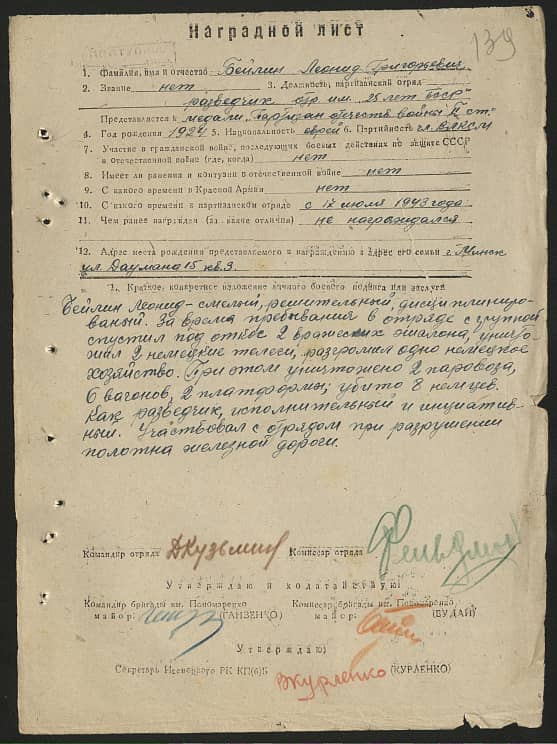 139
Наградной лист
1. Фамилия, имя и отчество Бейлин Леонид Григорьевич
2. Звание нет 3. Должность, партизанский отряд
разведчик отр. им. "25 лет БССР"
Представляется к медали "Партизан отечеств. войны II ст."
4. Год рождения 1924 5. Национальность еврей 6. Партийность чл. ВЛКСМ
7. Участие в гражданской войне, последующих боевых действиях по защите СССР
в Отечественной войне (где, когда) нет
8. Имеет ли ранения и контузии в отечественной войне нет
9. С какого времени в Красной Армии нет
10. С какого времени в партизанском отряде с 17 июля 1943 года
11. Чем ранее награжден (за какие отличия) не награждался
12. Адрес места рождения представляемого к награждению и адрес его семьи г. Минск
ул. Даумана 15 кв. 3.
1. Краткое, конкретное изложение личного боевого подвига или заслуг
Бейлин Леонид - смелый, решительный, дисциплиниро-
ваный. За время пребывания в отряде с группой
спустил под откос 2 вражеских эшалона, уничто-
жил 2 немецкие телеги, разгромил одно немецкое
хозяйство. При этом уничтожено 2 паровоза,
6 вагонов, 2 платформы; убито 8 немцев.
Как разведчик, исполнительный и инициатив-
ный. Участвовал с отрядом при разрушении
полотна железной дороги.
Командир отряда ДКузьмин Комиссар отряда
Утверждаю и ходатайствую
Командир бригады им. Пономаренко Комиссар бригады им. Пономаренко
майор: (ГАНЗЕНКО) майор: (БУДАЙ)
Утверждаю)
Секретарь Ивенецкого РК КП(б)Б ВКурленко (КУРЛЕНКО)